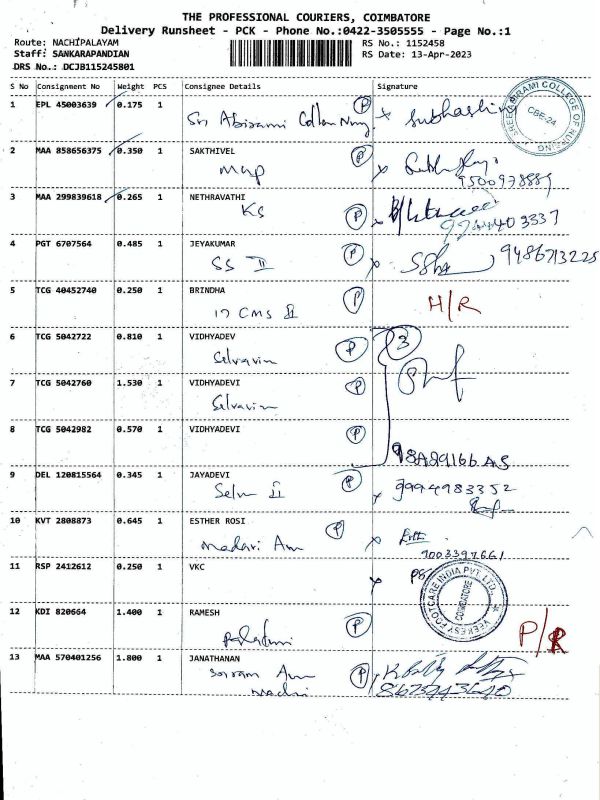 THE PROFESSIONAL COURIERS, COIMBATORE
Delivery Runsheet - PCK - Phone No.:0422-3505555 - Page No.:1
Route: NACHIPALAYAM RS No.: 1152458
Staff: SANKARAPANDIAN RS Date: 13-Apr-2023
DRS No.: DCJB115245801
S No Consignment No Weight PCS Consignee Details Signature
1 EPL 45003639 0.175 1 P
Sri Abirami
2 MAA 858656375 0.350 1 SAKTHIVEL P
Map
3 MAA 299839618 0.265 1 NETHRAVATHI P
KS
4 PGT 6707564 0.485 1 JEYAKUMAR P 9486713225
SS II
5 TCG 40452740 0.250 1 BRINDHA P H/R
17 CMS II
6 TCG 5042722 0.810 1 VIDHYADEV P 3
Selvarin
7 TCG 5042760 1.530 1 VIDHYADEVI P
Selvarin
8 TCG 5042982 0.570 1 VIDHYADEVI P
9 DEL 120815564 0.345 1 JAYADEVI P 9994983352
Selvn II
10 KVT 2808873 0.645 1 ESTHER ROSI P
7003397661
11 RSP 2412612 0.250 1 VKC
VEEKESY FOOTCARE INDIA PVT LTD.,
COIMBATORE
12 KDI 820664 1.400 1 RAMESH P P/R
13 MAA 570401256 1.800 1 JANATHANAN P